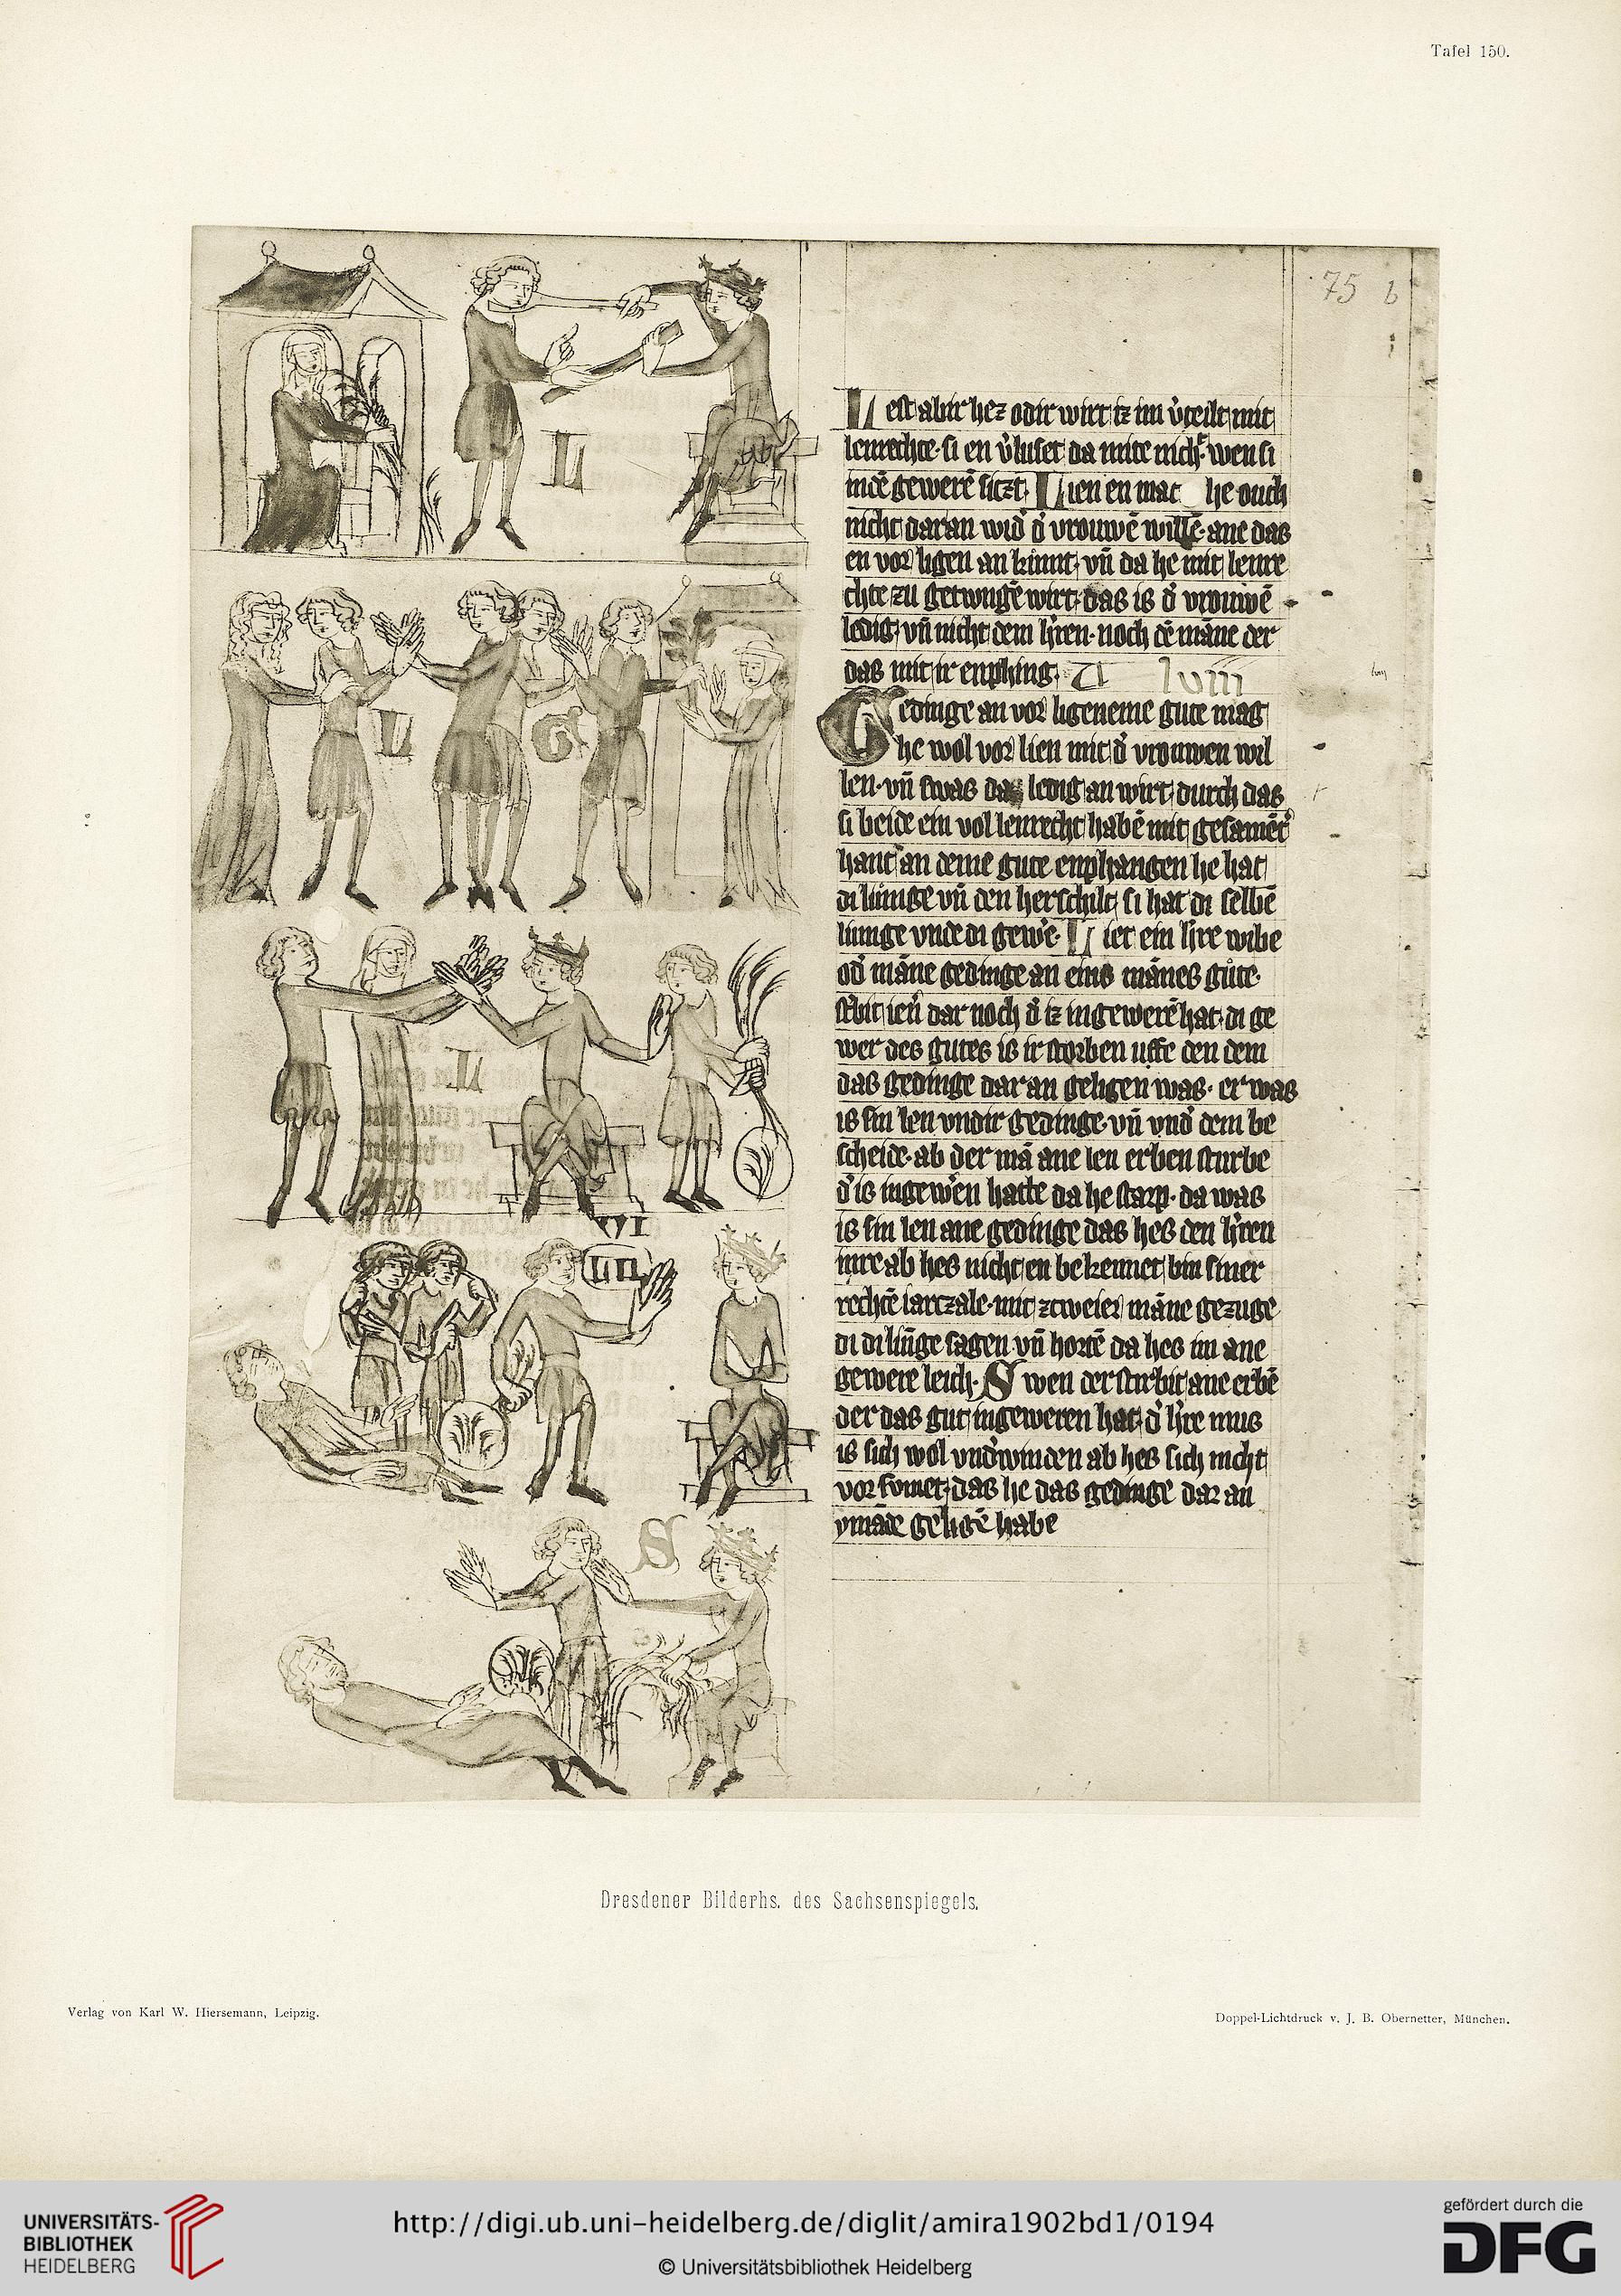 Tafel 150.
75 b
Lest abir hez odir wirt iz im v̓teilt mit
lenrechte· si en v̓luset da mite nicht· wen si
indē gewerē siczt. Lien en mac he ouch
nicht daran wid̓ d̓ vrouwē willē· ane das
en vor ligen an kumt· vn̄ da he mit lenre
chte zu getwūgē wirt· das is d̓ vrouwē
ledig· vn̄ nicht dem h̓ren· noch dē māne der
das mit ir enphing.
lviii
Gedinge an vor ligeneme gute mag
he wol vor lien mit d̓ vrouwen wil
len· vn̄ swas das ledig an wirt durch das
si beide ein vol lenrecht habē mit gesamēt̓
hant an deme gute enphangen he hat
di lūinge vn̄ den herschilt si hat di selbē
liunge vnde di gew̓e· Liet ein h̓re wibe
od̓ māne gedinge an eins mānes gůte·
stirbit ien̓ dar noch d̓ iz in gewerē hat· di ge
wer des gutes is ir storben uffe den dem
das gedinge dar an geligen was· er was
is sin len vndir gedinge· vn̄ vnd̓ dem be
scheide· ab der mā ane len erben sturbe
d̓ is in gew̓en hatte da he starp· da was
is sin len ane gedinge das hes den h̓ren
inre ab hes nicht en bekennet bin siner
rechtē iarczale· mit zcweier māne gezuge
di di līnge sagen vn̄ hortē da hes im ane
gewere leich· Swen der sturbit ane erbē
der das gut in geweren hat· d̓ h̓re mus
is sich wol vnd̓winden ab hes sich nicht
vor sumet· das he das gedinge dar an
ymāde geligē habe
L
L
G
L
VI
LII
S
Dresdener Bilderhs. des Sachsenspiegels.
Verlag von Karl W. Hiersemann, Leipzig.
Doppel-Lichtdruck v. J. B. Obernetter, München.
UNIVERSITÄTS-
BIBLIOTHEK
HEIDELBERG
http://digi.ub.uni-heidelberg.de/diglit/amira1902bd1/0194
© Universitätsbibliothek Heidelberg
gefördert durch die
DFG